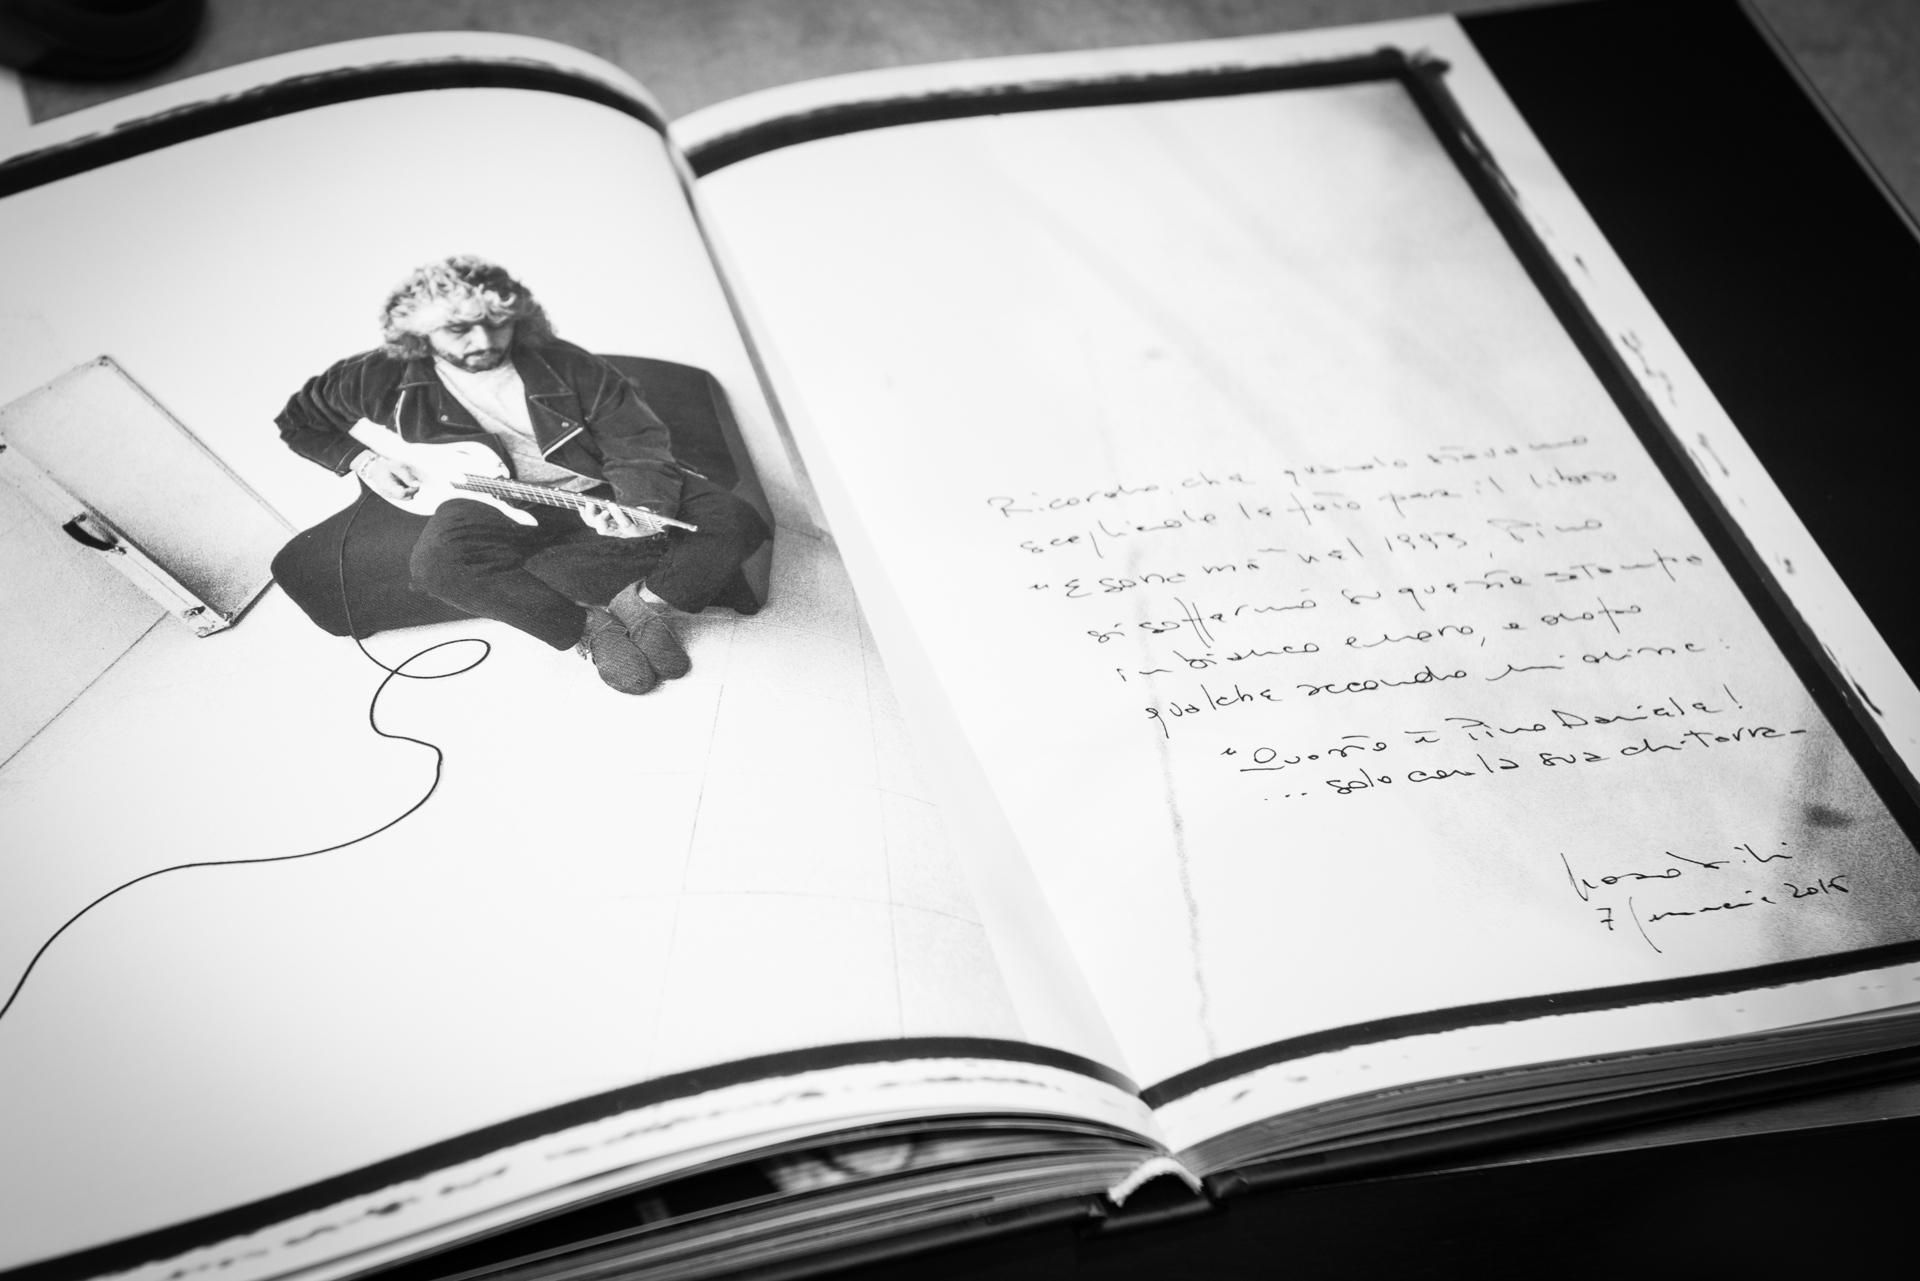 Ricordo, che quando stavamo
scegliendo le foto per il libro
"E sona mo'" nel 1993, Pino
si soffermò su queste stampe
in bianco e nero, e dopo
qualche secondo mi disse:
"Questo è Pino Daniele!
... solo con la sua chitarra-
7 gennaio 2015